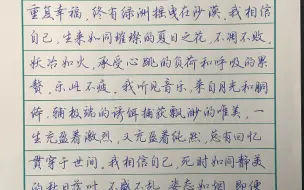 重复幸福，终有绿洲摇曳在沙漠。我相信
自己，生来如同璀璨的夏日之花，不凋不败，
妖冶如火，承受心跳的负荷和呼吸的累
赘，乐此不疲。我听见音乐，来自月光和胴
体，辅极端的诱饵捕获飘渺的唯美，一
生充盈着激烈，又充盈着纯然，总有回忆
贯穿于世间。我相信自己，死时如同静美
的秋日落叶，不盛不乱，姿态如烟，即便